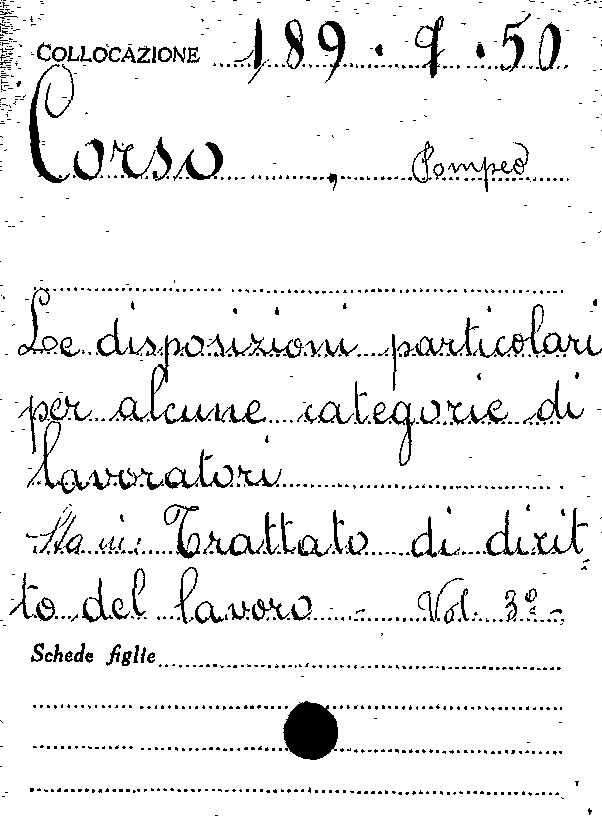 COLLOCAZIONE 189 . 9 . 50
Corso , Pompeo
Le disposizioni particolari
per alcune categorie di
lavoratori
Sta in: Trattato di dirit-
to del lavoro - Vol. 3º -
Schede figlie